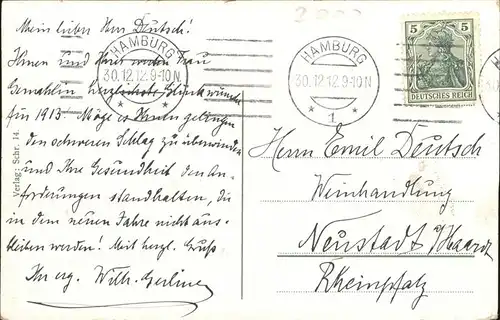 Mein lieber Herr Deutsch!
Ihnen und Ihrer werten Frau
Gemahlin herzlichste Glückwünsche
für 1913. Möge es Ihnen gelingen
den schweren Schlag zu überwinden
und Ihre Gesundheit den An-
forderungen standhalten, die
in dem neuen Jahre nicht aus-
bleiben werden! Mit herzl. Gruß
Ihr erg. Wilh.
Verlag: Schr. 14.
HAMBURG
30.12.12.9-10N
* *
HAMBURG
30.12.12.9-10N
* 1 *
5 5
DEUTSCHES REICH
Herrn Emil Deutsch
Weinhandlung
Neustadt a/Haardt
Rheinpfalz